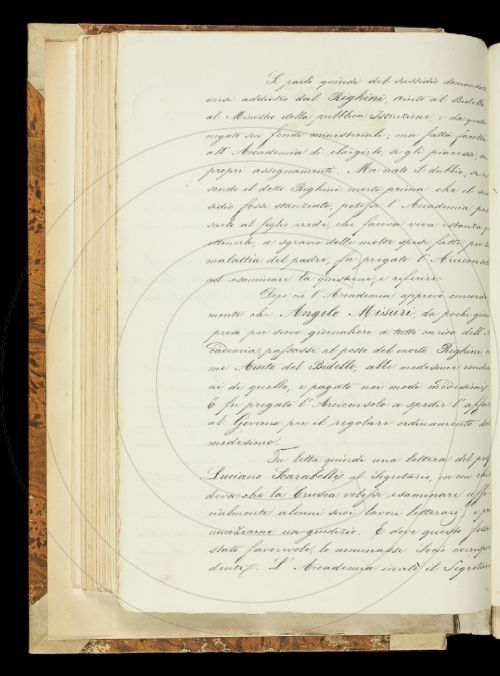 Si parlò quindi del sussidio domandato
mesi addietro dal Righini, aiuto al Bidello
al Ministro della pubblica Istruzione, e da questo
negato sui fondi ministeriali; ma fatta facoltà
all' Accademia di elargirlo, se gli piacesse, su
propri assegnamenti. Ma nato il dubbio, se es
sendo il detto Righini morto prima che il sus
sidio fosse stanziato, potesse l' Accademia pas
sarlo al figlio erede, che faceva viva istanza p
ottenerlo, a sgravio delle molte spese fatte per la
malattia del padre, fu pregato l' Arciconsolo
ad esaminare la questione, e riferire.
Dopo ciò l' Accademia approvò concorde
mente che Angelo Misuri, da pochi gior
preso per servo giornaliero a tutto carico dell' A
cademia, passasse al posto del morto Righini, co
me Aiuto del Bidello, alle medesime condizio
ni di quello, e pagato nei modi medesimi.
E fu pregato l' Arciconsolo a spedir l' affare
al Governo per il regolare ordinamento del
medesimo.
Fu letta quindi una lettera del prof
Luciano Scarabelli al Segretario, in cui chie
deva che la Crusca volesse esaminare uffi
cialmente alcuni suoi lavori letterari, e pro
nunziarne un giudizio. E dove questo fosse
stato favorevole, lo nominasse Socio corrispon
dente. L' Accademia invitò il Segretario